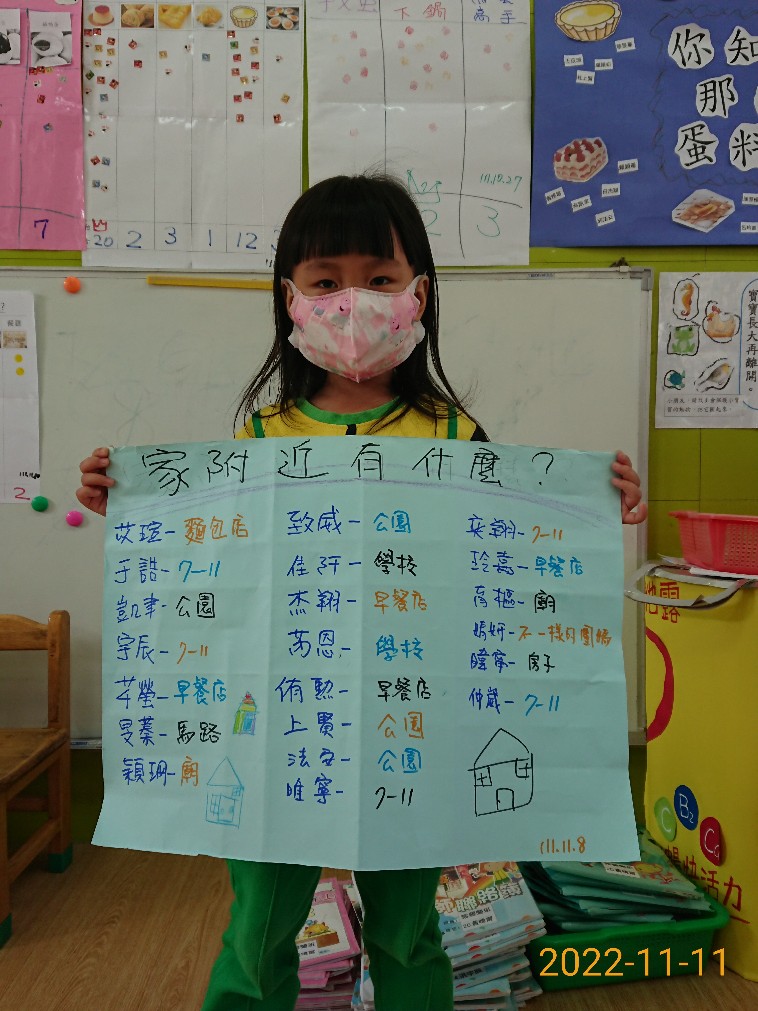 下鍋
高手
111.10.27
7
20 2 3 1 12
2 3
你知
那
蛋料
寶寶長大再離開。
2
家附近有什麼？
艾瑄-麵包店
于誥-7-11
凱聿-公園
宇辰-7-11
芊螢-早餐店
旻蓁-馬路
穎珊-廟
致威-公園
佳阡-學校
杰翔-早餐店
芮恩-學校
侑勳-早餐店
上賢-公園
法安-公園
唯寧-7-11
奕翔-7-11
玲嘉-早餐店
育樞-廟
嫣妍-不一樣的圍牆
暐寧-房子
仲崴-7-11
111.11.8
露
C B2 C6
快活力
2022-11-11